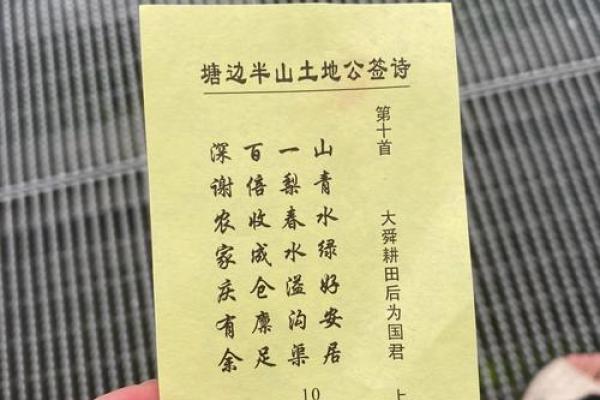 塘边半山土地公签诗
第十首 大舜耕田后为国君
山青水绿好安居
一梨春水溢沟渠
百倍收成仓廪足
深谢农家庆有余
10
上